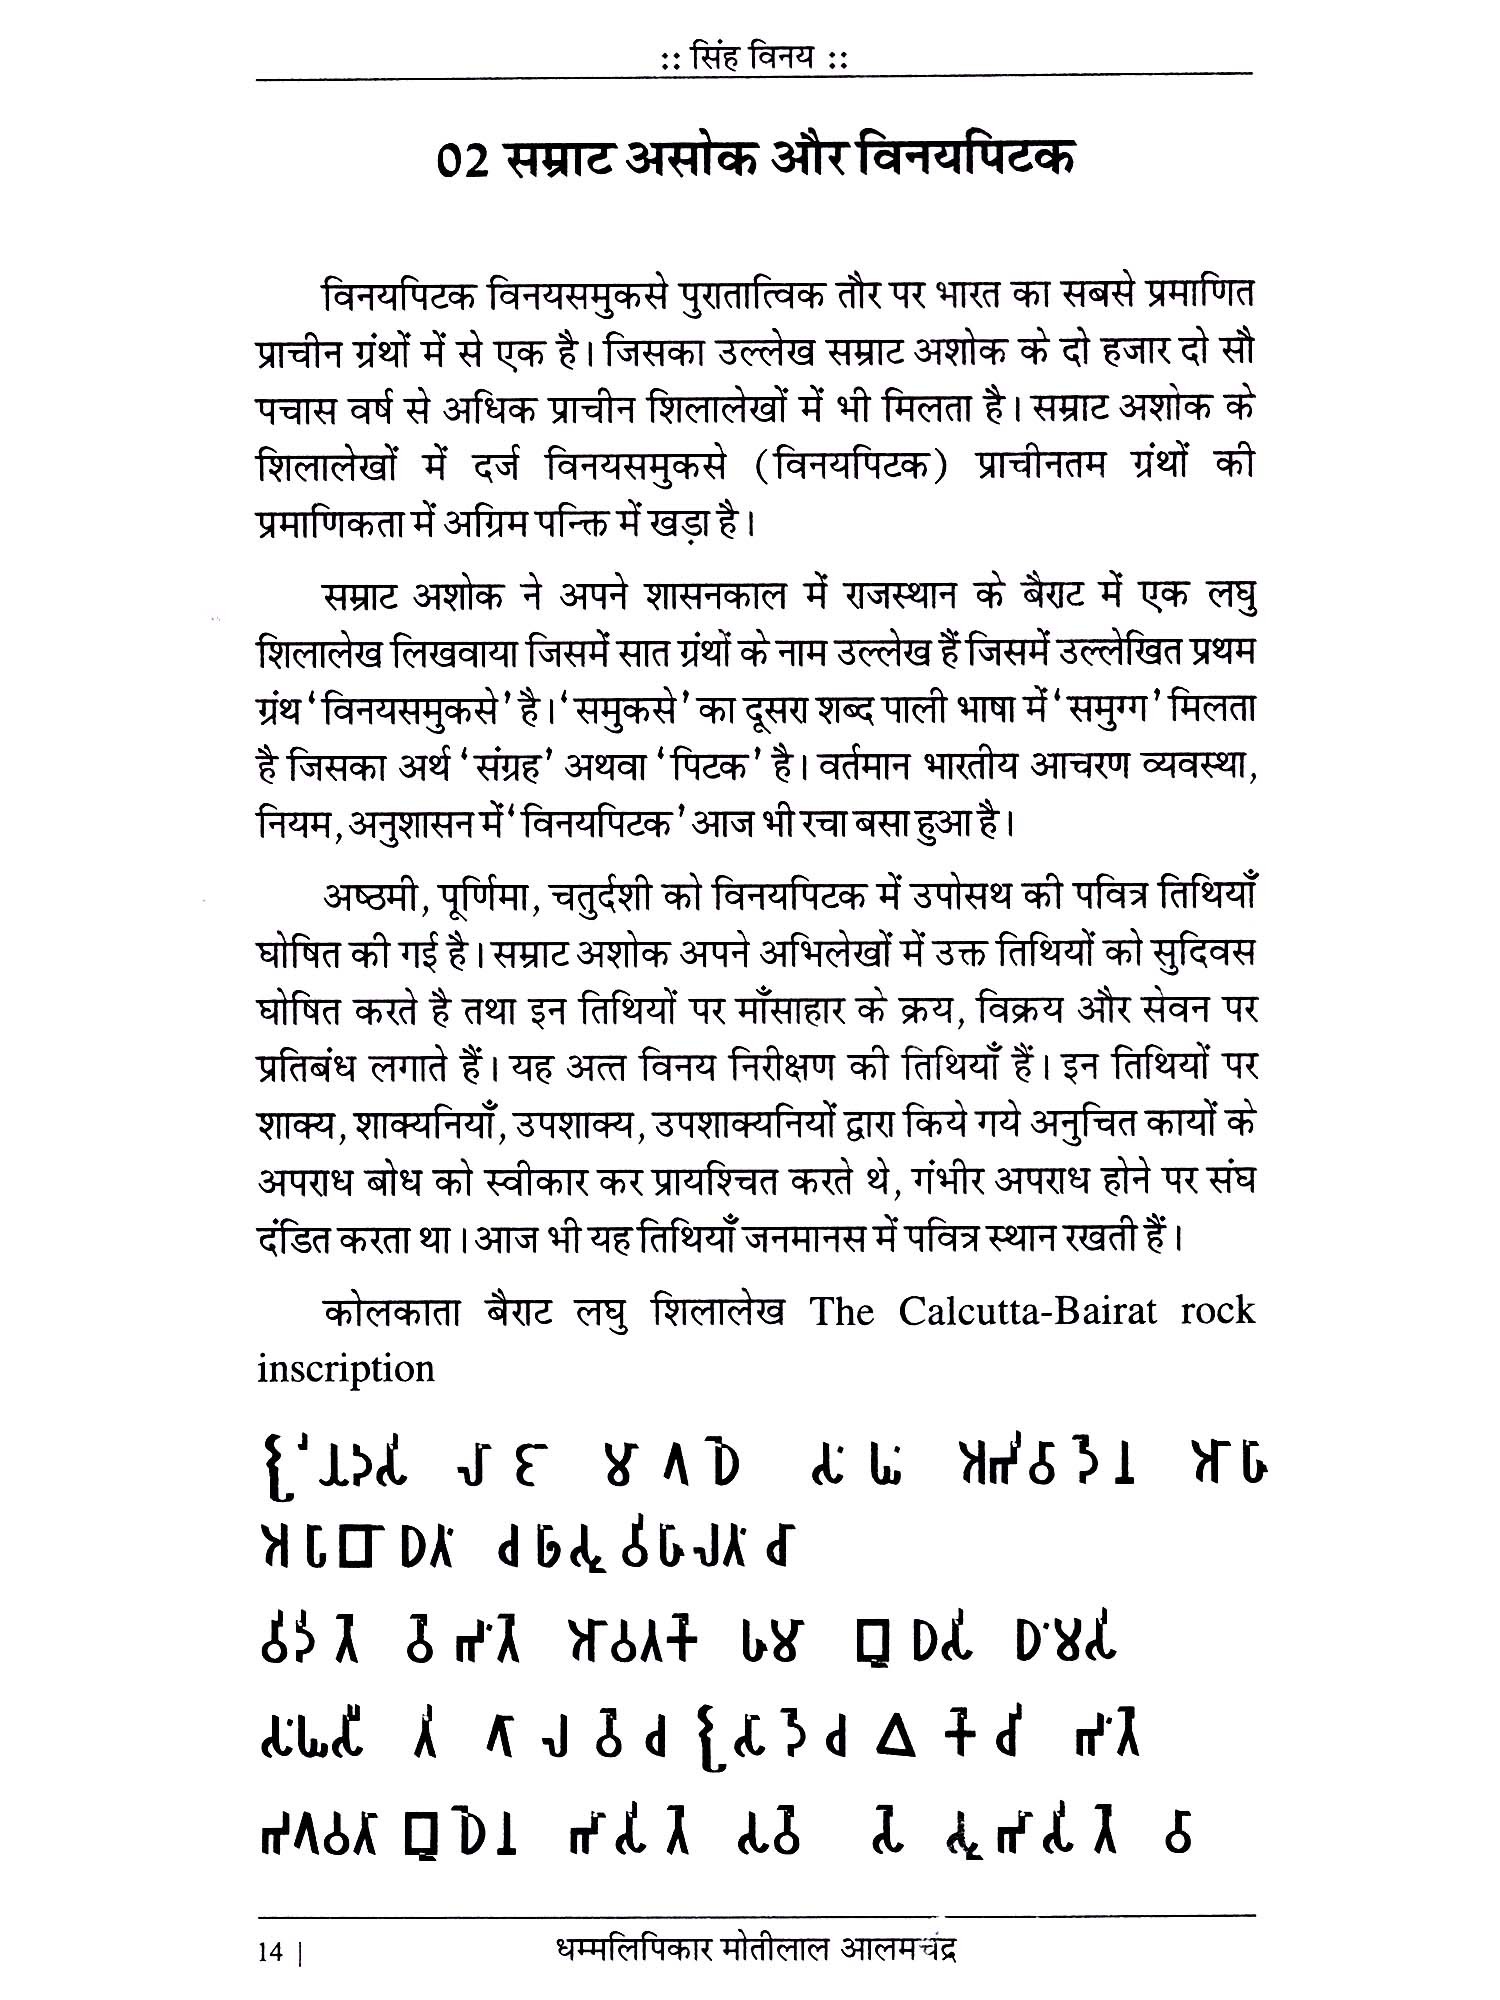 :: सिंह विनय ::
02 सम्राट असोक और विनयपिटक
विनयपिटक विनयसमुकसे पुरातात्विक तौर पर भारत का सबसे प्रमाणित
प्राचीन ग्रंथों में से एक है। जिसका उल्लेख सम्राट अशोक के दो हजार दो सौ
पचास वर्ष से अधिक प्राचीन शिलालेखों में भी मिलता है। सम्राट अशोक के
शिलालेखों में दर्ज विनयसमुकसे (विनयपिटक) प्राचीनतम ग्रंथों की
प्रमाणिकता में अग्रिम पन्क्ति में खड़ा है।
सम्राट अशोक ने अपने शासनकाल में राजस्थान के बैराट में एक लघु
शिलालेख लिखवाया जिसमें सात ग्रंथों के नाम उल्लेख हैं जिसमें उल्लेखित प्रथम
ग्रंथ ‘विनयसमुकसे’ है। ‘समुकसे’ का दूसरा शब्द पाली भाषा में ‘समुग्ग’ मिलता
है जिसका अर्थ ‘संग्रह’ अथवा ‘पिटक’ है। वर्तमान भारतीय आचरण व्यवस्था,
नियम, अनुशासन में ‘विनयपिटक’ आज भी रचा बसा हुआ है।
अष्ठमी, पूर्णिमा, चतुर्दशी को विनयपिटक में उपोसथ की पवित्र तिथियाँ
घोषित की गई है। सम्राट अशोक अपने अभिलेखों में उक्त तिथियों को सुदिवस
घोषित करते है तथा इन तिथियों पर माँसाहार के क्रय, विक्रय और सेवन पर
प्रतिबंध लगाते हैं। यह अत्त विनय निरीक्षण की तिथियाँ हैं। इन तिथियों पर
शाक्य, शाक्यनियाँ, उपशाक्य, उपशाक्यनियों द्वारा किये गये अनुचित कार्यो के
अपराध बोध को स्वीकार कर प्रायश्चित करते थे, गंभीर अपराध होने पर संघ
दंडित करता था। आज भी यह तिथियाँ जनमानस में पवित्र स्थान रखती हैं।
कोलकाता बैराट लघु शिलालेख The Calcutta-Bairat rock
inscription
14 | धम्मलिपिकार मोतीलाल आलमचंद्र